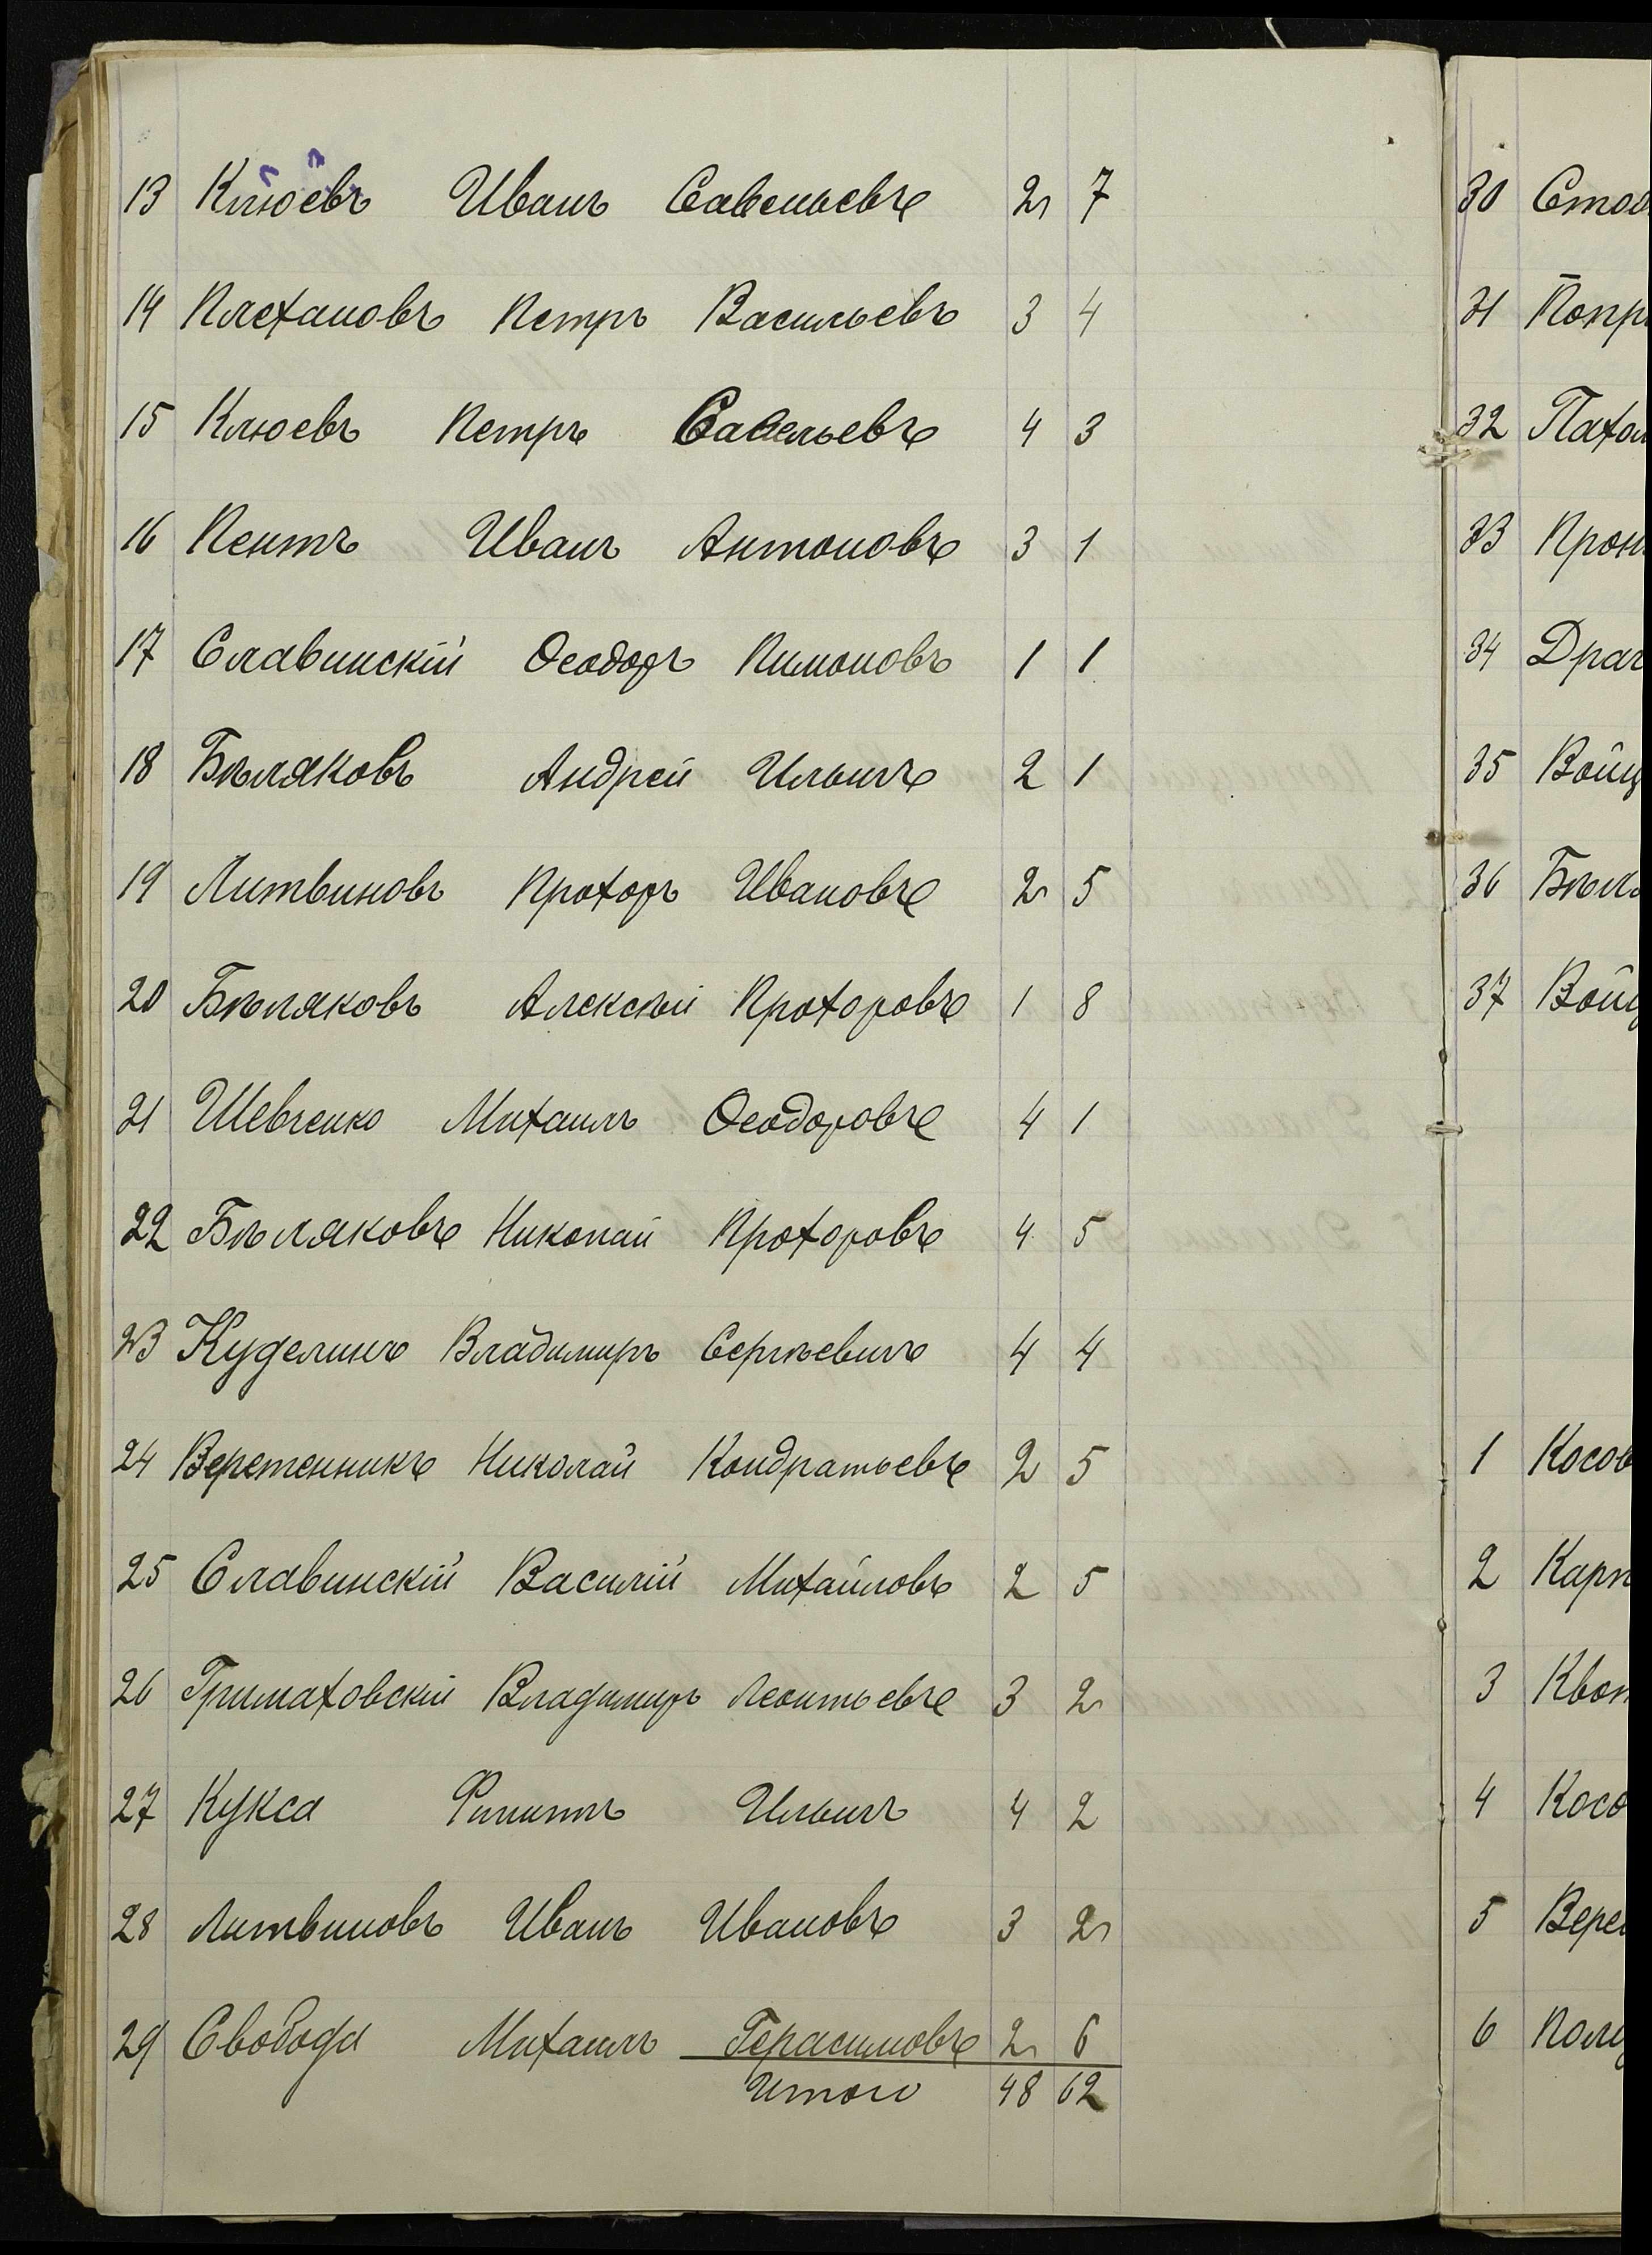 13 Клюевъ Иванъ Савельевъ 2 7
14 Плехановъ Петръ Васильевъ 3 4
15 Клюевъ Петръ Савельевъ 4 3
16 Пентъ Иванъ Антоновъ 3 1
17 Славинскій Ѳеодоръ Пимоновъ 1 1
18 Бѣляковъ Андрей Ильичъ 2 1
19 Литвиновъ Прохоръ Ивановъ 2 5
20 Бѣляковъ Алексѣй Прохоровъ 1 8
21 Шевченко Михаилъ Ѳеодоровъ 4 1
22 Бѣляковъ Николай Прохоровъ 4 5
23 Куделинъ Владимиръ Сергѣевичъ 4 4
24 Веретенникъ Николай Кондратьевъ 2 5
25 Славинскій Василій Михайловъ 2 5
26 Гримаховскій Владимиръ Леонтьевъ 3 2
27 Кукса Филиппъ Ильичъ 4 2
28 Литвиновъ Иванъ Ивановъ 3 2
29 Свобода Михаилъ Герасимовъ 2 6
Итого 48 62
30
31
32
33
34
35
36
37
1
2
3
4
5
6